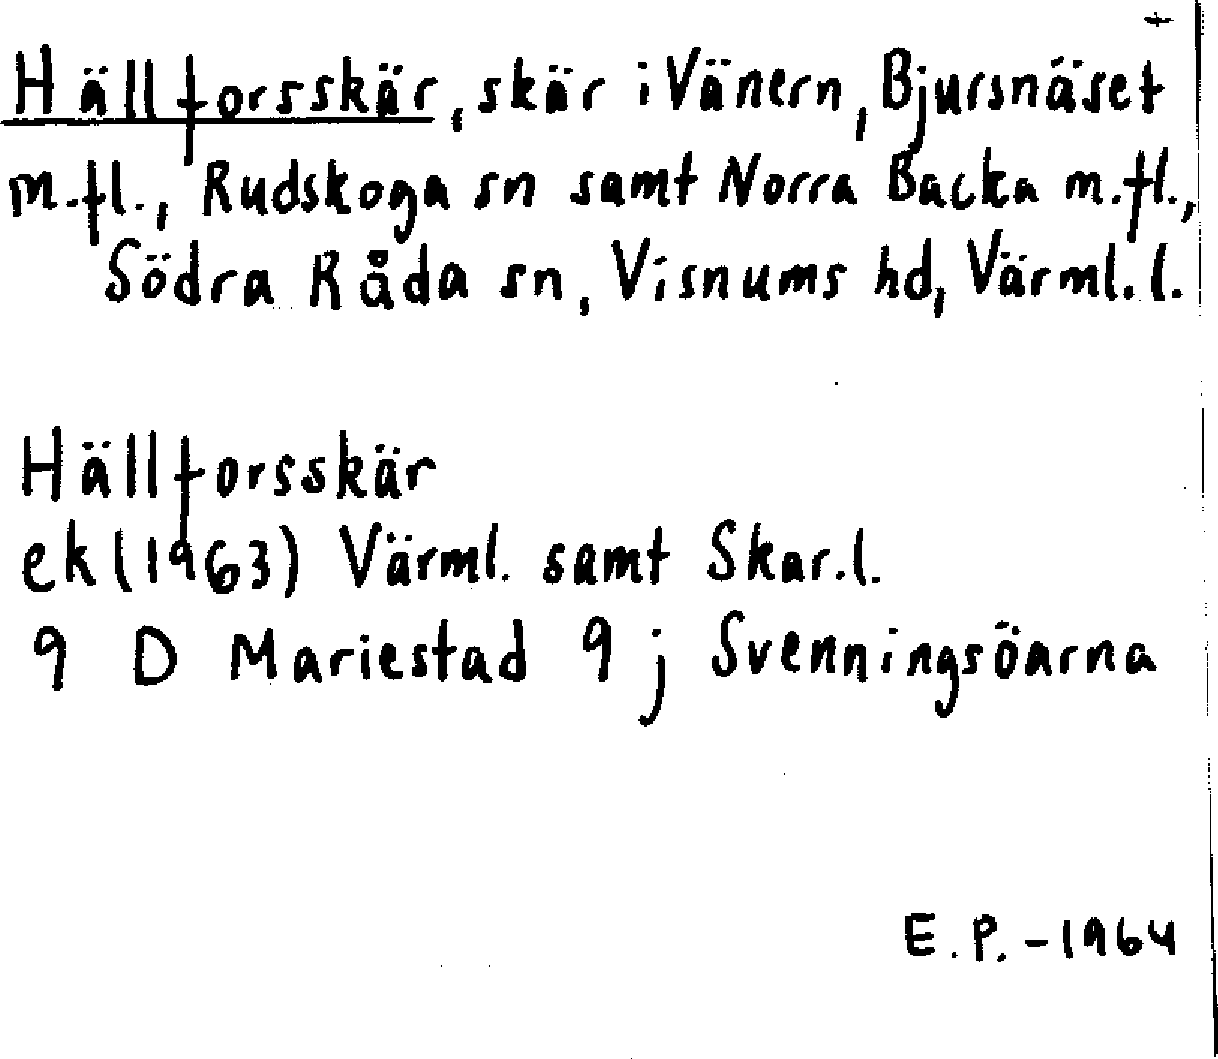 +
Hällforsskär, skär i Vänern, Bjursnäset
m.fl., Rudskoga sn samt Norra Backa m.fl.,
Södra Råda sn, Visnums hd, Värml. l.
Hällforsskär
ek (1963) Värml. samt Skar. l.
9 D Mariestad 9 j Svenningsöarna
E. P. - 1964